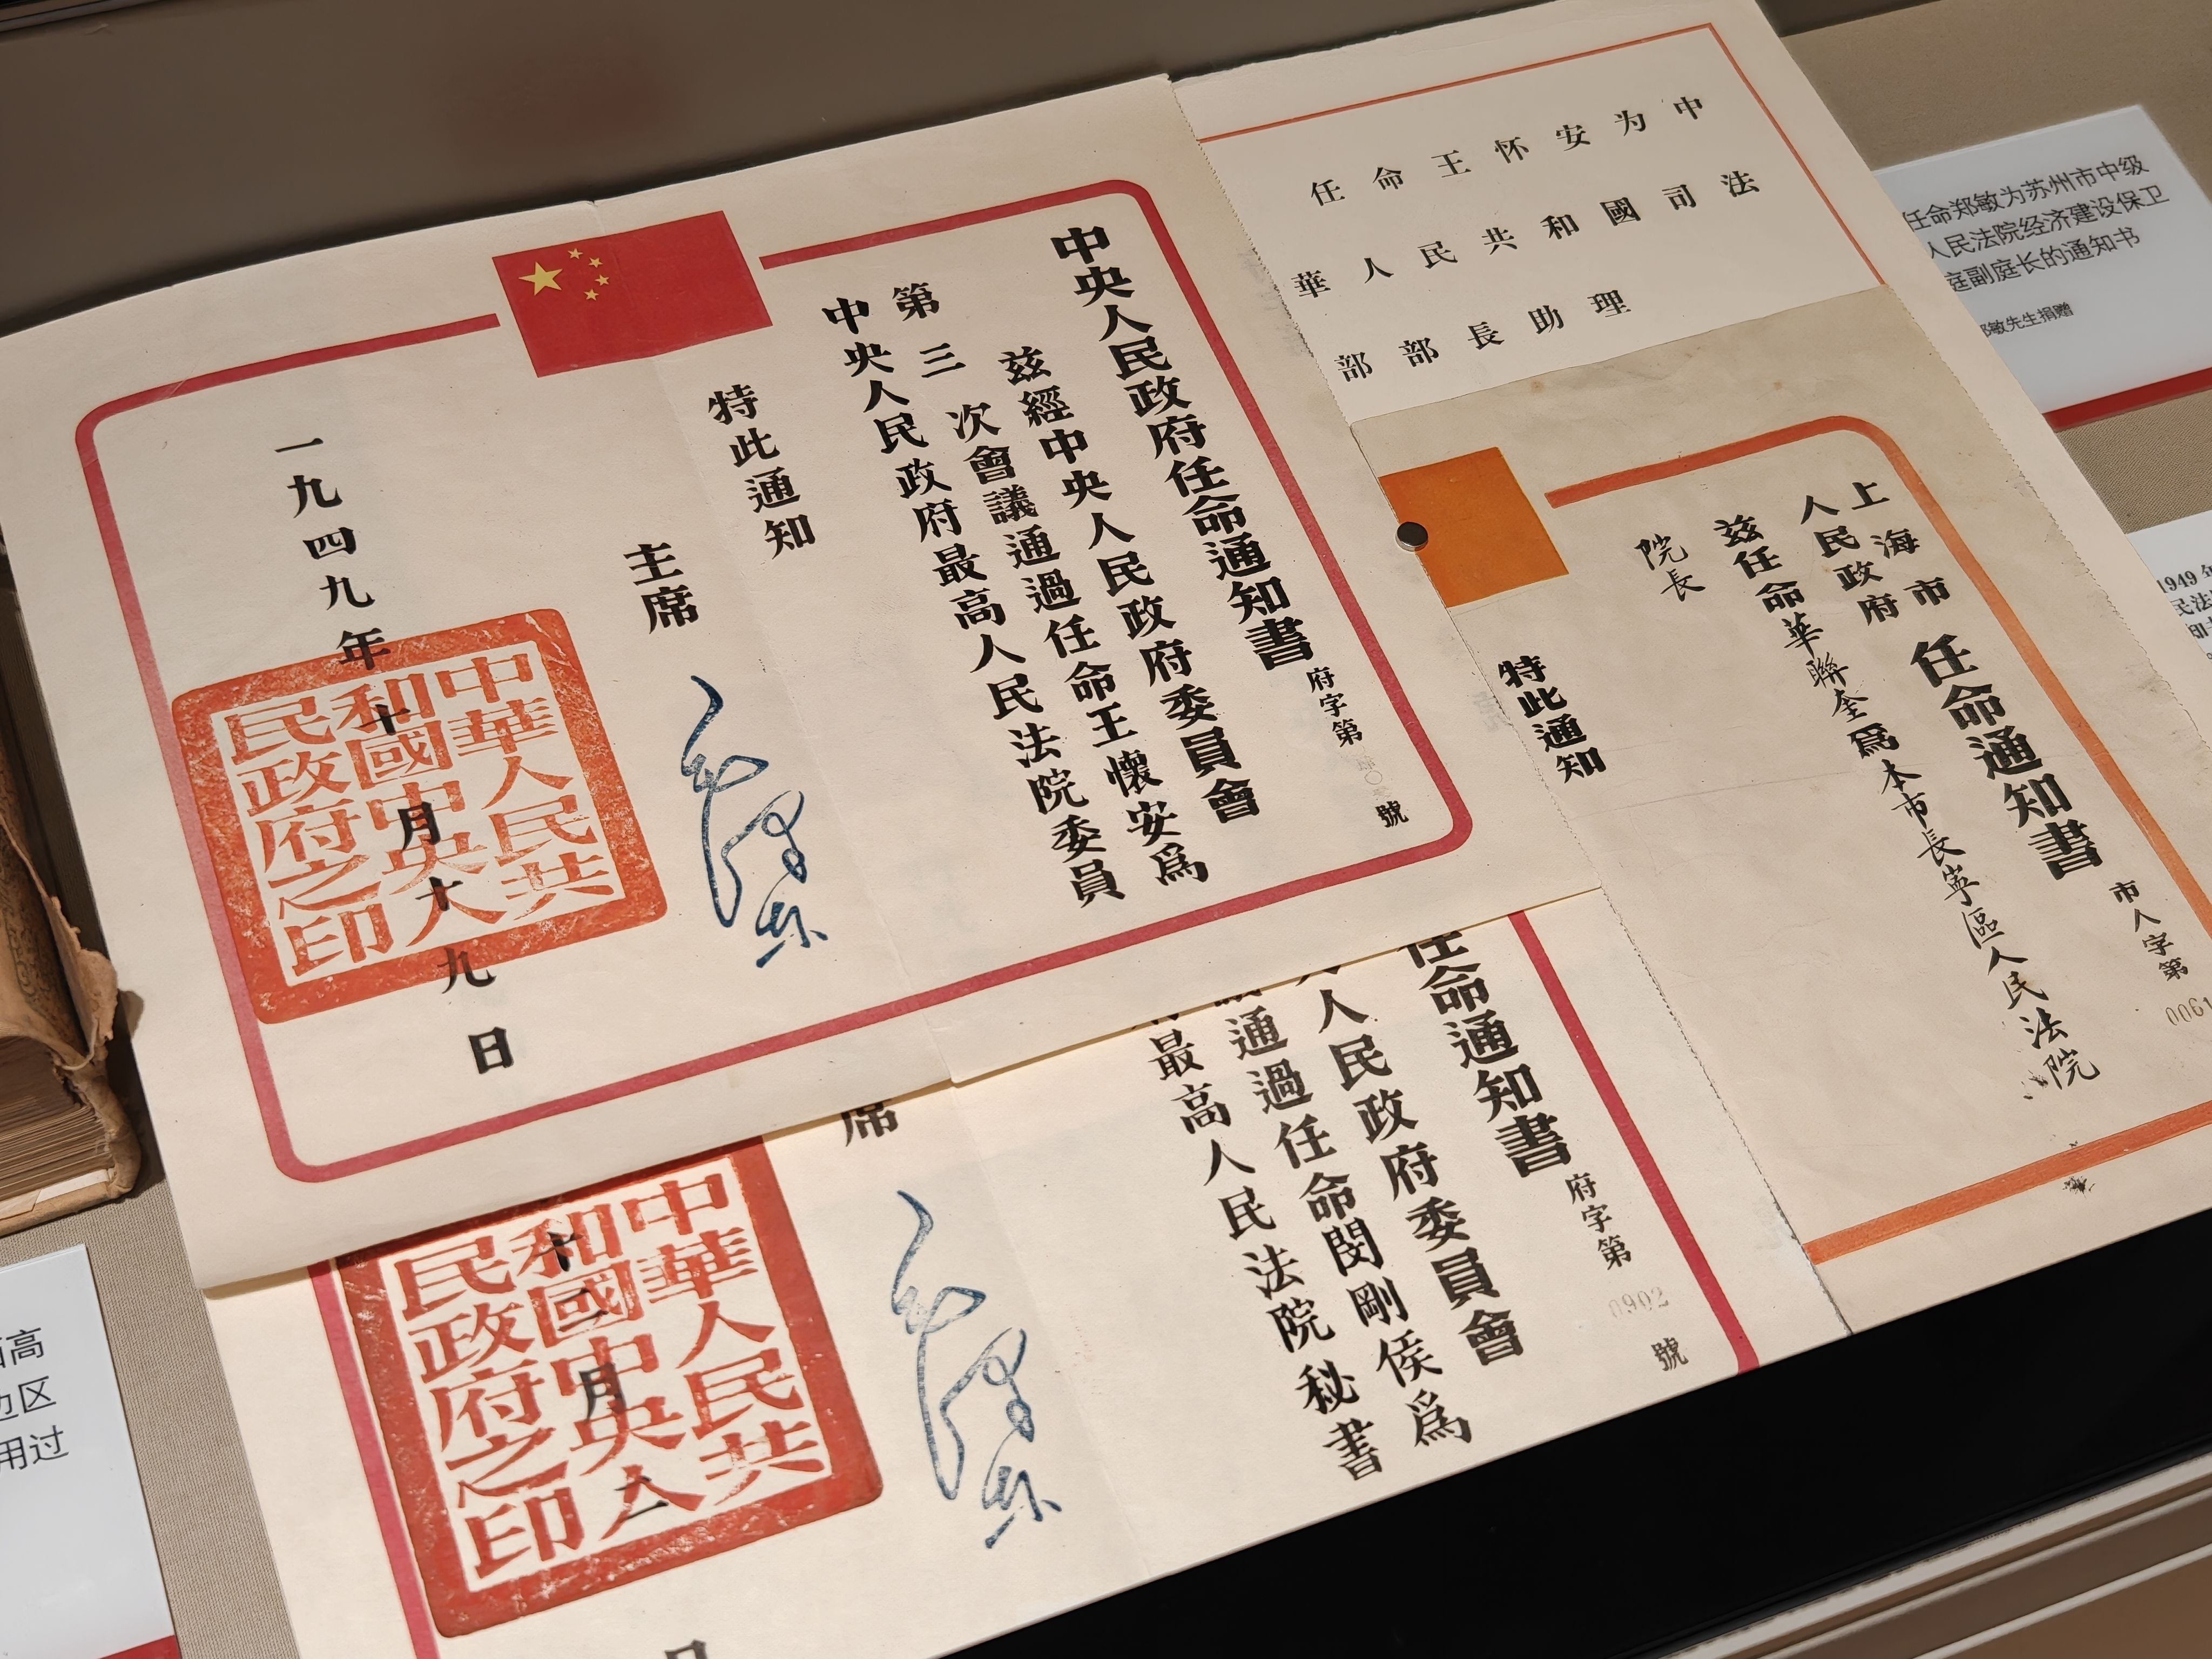 中央人民政府任命通知書
府字第
號
茲經中央人民政府委員會
第三次會議通過任命王懷安爲
中央人民政府最高人民法院委員
特此通知
主席
一九四九年十月十九日
中華人民共
和國中央人
民政府之印
任命王怀安为中
華人民共和國司法
部部長助理
上海市
人民政府
任命通知書
市人字第
0061
茲任命華聯奎爲本市長寧區人民法院
院長
特此通知
任命通知書
府字第
0902
號
人民政府委員會
通過任命閔剛侯爲
最高人民法院秘書
席
十二月二
日
中華人民共
和國中央人
民政府之印
任命郑敏为苏州市中级
人民法院经济建设保卫
庭副庭长的通知书
郑敏先生捐赠
1949
民法
高
边区
用过